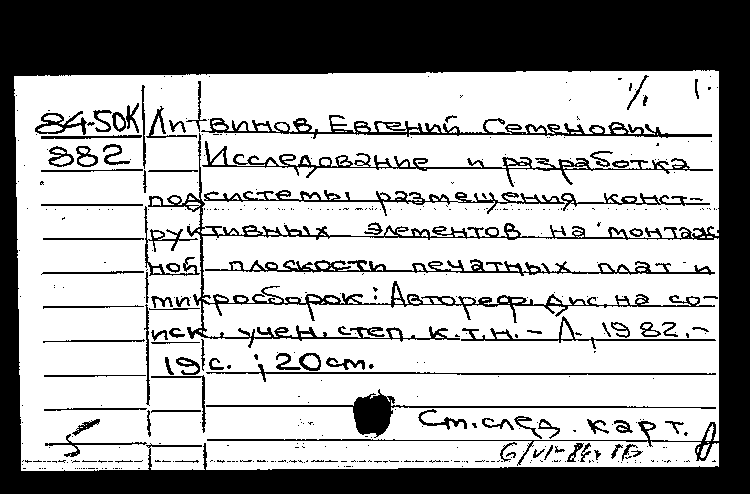 84-50К Литвинов, Евгений Семенович.
882 Исследование и разработка
подсистемы размещения конст-
руктивных элементов на монтаж-
ной плоскости печатных плат и
микросборок: Автореф. дис. на со-
иск. учен. степ. к.т.н. - Л., 1982. -
19 с. ; 20 см.
См. след. карт.
5